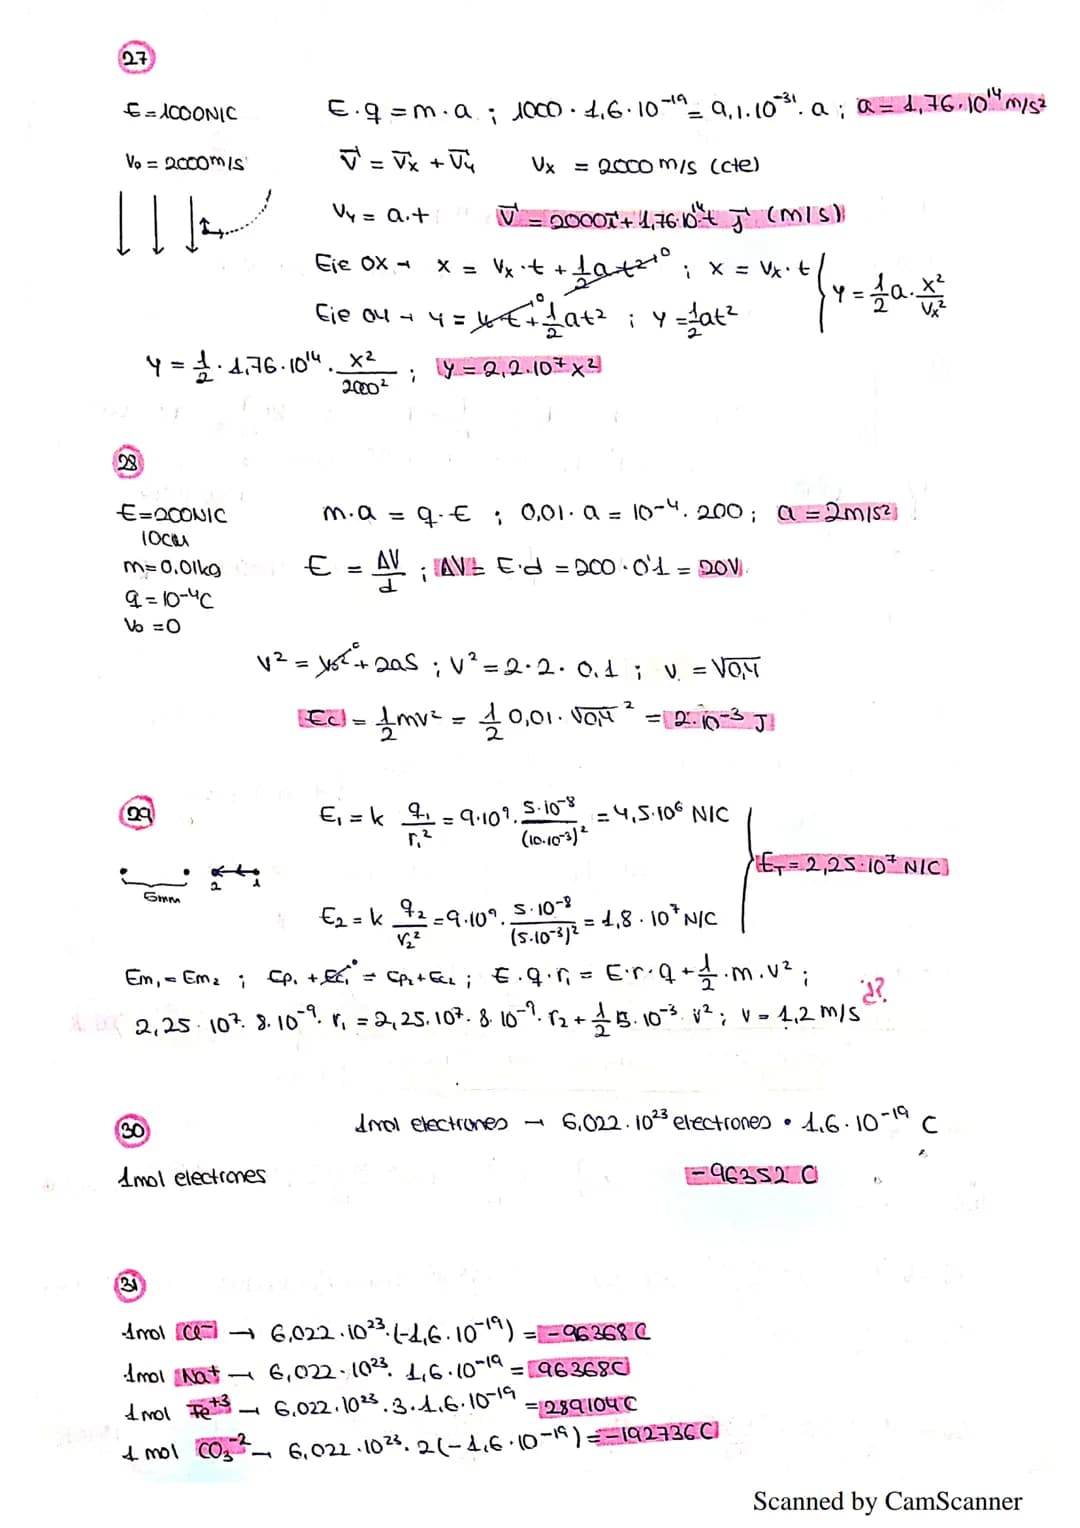 27
E = 1000N/C    E·q = m·a ; 1000 · 1,6·10⁻¹⁹ = 9,1·10⁻³¹·a ; a = 1,76·10¹⁴ m/s²
V₀ = 2000m/s    V⃗ = V⃗x + V⃗y    Vx = 2000 m/s (cte)
Vy = a·t    V⃗ = 2000i⃗ + 1,76·10¹⁴t j⃗ (m/s)
Eje OX → x = Vx·t + 1/2 at² 0 ; x = Vx·t
Eje OY → y = V₀t 0 + 1/2 at² ; y = 1/2 at²    } y = 1/2 a · x²/Vx²
y = 1/2 · 1,76·10¹⁴ · x²/2000² ; y = 2,2·10⁷x²
28
E = 200N/C    m·a = q·E ; 0,01·a = 10⁻⁴·200 ; a = 2m/s²
10cm
m = 0,01kg    E = ΔV/d ; ΔV = E·d = 200·0'1 = 20V
q = 10⁻⁴C
V₀ = 0
V² = V₀² 0 + 2aS ; V² = 2·2·0,1 ; v = √0,4
Ec = 1/2 mv² = 1/2 0,01·√0,4² = 2·10⁻³ J
29
E₁ = k q₁/r₁² = 9·10⁹ · 5·10⁻⁸/(10·10⁻³)² = 4,5·10⁶ N/C
6mm    2    1    } E_T = 2,25·10⁷ N/C
E₂ = k q₂/r₂² = 9·10⁹ · 5·10⁻⁸/(5·10⁻³)² = 1,8·10⁷ N/C
Em₁ = Em₂ ; Ep₁ + Ec₁ 0 = Ep₂ + Ec₂ ; E·q·r₁ = E·r·q + 1/2·m·v² ;
2,25·10⁷·8·10⁻⁹·r₁ = 2,25·10⁷·8·10⁻⁹·r₂ + 1/2 5·10⁻³·v² ; v = 1,2 m/s ¿?
30
1mol electrones → 6,022·10²³ electrones · 1,6·10⁻¹⁹ C
1mol electrones    -96352 C
31
1mol Cl⁻ → 6,022·10²³·(-1,6·10⁻¹⁹) = -96368 C
1mol Na⁺ → 6,022·10²³·1,6·10⁻¹⁹ = 96368C
1mol Fe⁺³ → 6,022·10²³·3·1,6·10⁻¹⁹ = 289104C
1 mol CO₃⁻² → 6,022·10²³·2(-1,6·10⁻¹⁹) = -192736C
Scanned by CamScanner